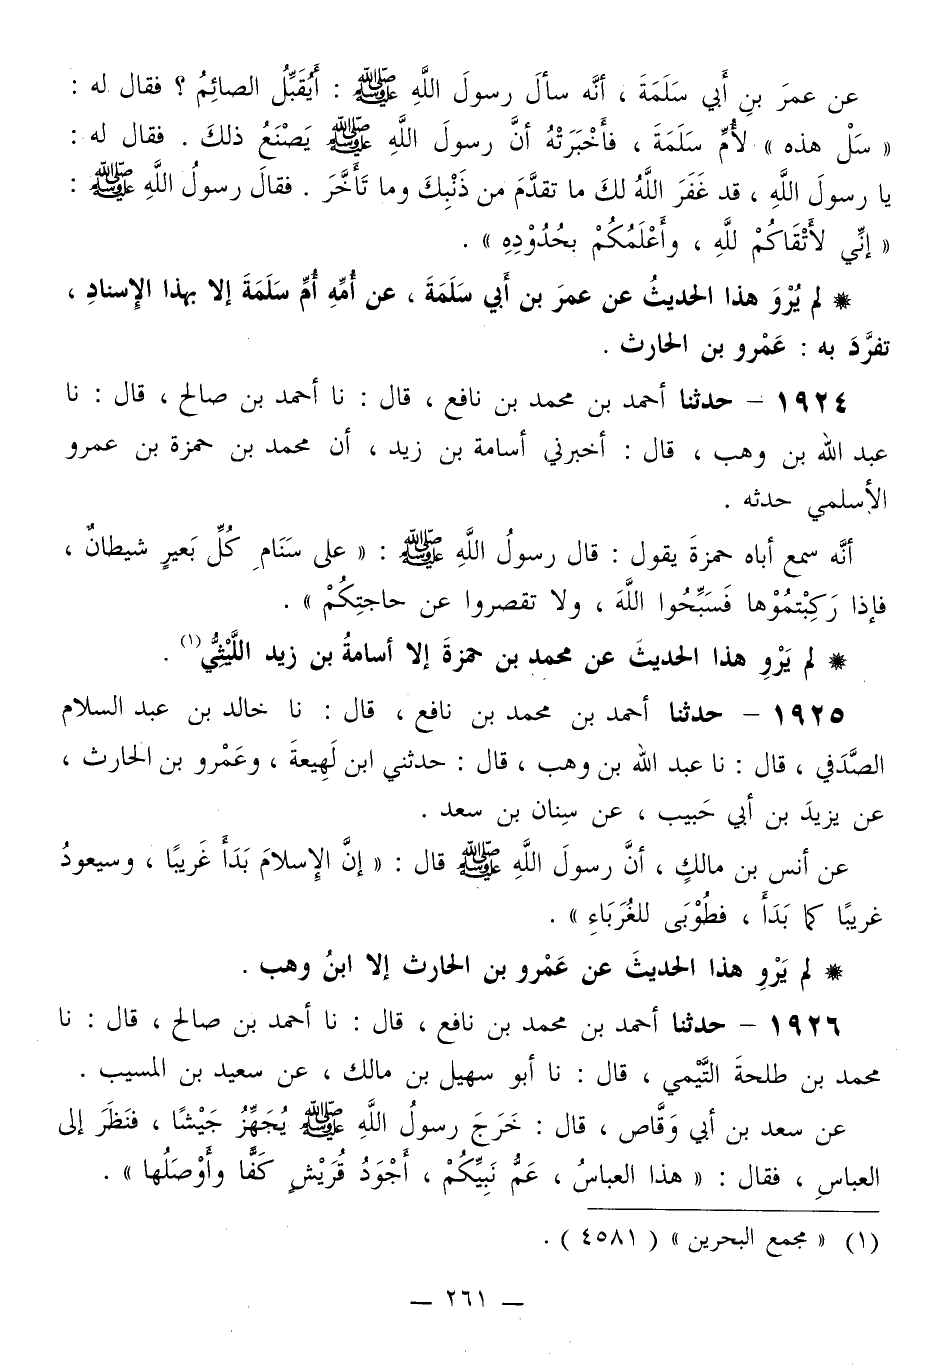 عن عمرَ بنِ أَبي سَلَمَةَ ، أنَّه سألَ رسولَ اللَّهِ ﷺ : أَيُقَبِّلُ الصائِمُ ؟ فقال له :
« سَلْ هذه » لأُمِّ سَلَمَةَ ، فأَخْبَرَتْهُ أنَّ رسولَ اللَّهِ ﷺ يَصْنَعُ ذلكَ . فقال له :
يا رسولَ اللَّهِ ، قد غَفَرَ اللَّهُ لكَ ما تقدَّمَ من ذَنْبِكَ وما تَأَخَّرَ . فقالَ رسولُ اللَّهِ ﷺ :
« إنِّي لأَتْقَاكُمْ للَّهِ ، وأَعْلَمُكُمْ بحُدُوْدِهِ » .
* لم يُرْوَ هذا الحديثُ عن عمرَ بن أَبي سَلَمَةَ ، عن أُمِّهِ أُمِّ سَلَمَةَ إلا بهذا الإِسنادِ ،
تفرَّدَ به : عَمْرو بن الحارث .
١٩٢٤ – حدثنا أحمد بن محمد بن نافع ، قال : نا أحمد بن صالح ، قال : نا
عبد الله بن وهب ، قال : أخبرني أسامة بن زيد ، أن محمد بن حمزة بن عمرو
الأسلمي حدثه .
أنَّه سمع أباه حمزةَ يقول : قال رسولُ اللَّهِ ﷺ : « على سَنَامِ كُلِّ بَعيرٍ شيطانٌ ،
فإذا رَكِبْتمُوْها فَسَبِّحُوا اللَّهَ ، ولا تقصروا عن حاجتِكُمْ » .
* لم يَرْوِ هذا الحديثَ عن محمد بن حمزةَ إلا أسامةُ بن زيد اللَّيْثِيُّ(١) .
١٩٢٥ – حدثنا أحمد بن محمد بن نافع ، قال : نا خالد بن عبد السلام
الصَّدَفي ، قال : نا عبد الله بن وهب ، قال : حدثني ابن لَهِيعةَ ، وعَمْرو بن الحارث ،
عن يزيدَ بن أبي حَبيب ، عن سِنان بن سعد .
عن أنس بن مالكٍ ، أنَّ رسولَ اللَّهِ ﷺ قال : « إنَّ الإِسلامَ بَدَأَ غَريبًا ، وسيعودُ
غريبًا كما بَدَأَ ، فطُوْبَى للغُرَبَاءِ » .
* لم يَرْوِ هذا الحديثَ عن عَمْرو بن الحارث إلا ابنُ وهب .
١٩٢٦ – حدثنا أحمد بن محمد بن نافع ، قال : نا أحمد بن صالح ، قال : نا
محمد بن طلحةَ التَّيْمي ، قال : نا أبو سهيل بن مالك ، عن سعيد بن المسيب .
عن سعد بن أبي وَقَّاص ، قال : خَرَجَ رسولُ اللَّهِ ﷺ يُجَهِّزُ جَيْشًا ، فنَظَرَ إلى
العباسِ ، فقال : « هذا العباسُ ، عَمُّ نَبِيِّكُمْ ، أَجْوَدُ قُرَيْشٍ كَفًّا وأَوْصَلُها » .
(١) « مجمع البحرين » ( ٤٥٨١ ) .
– ٢٦١ –